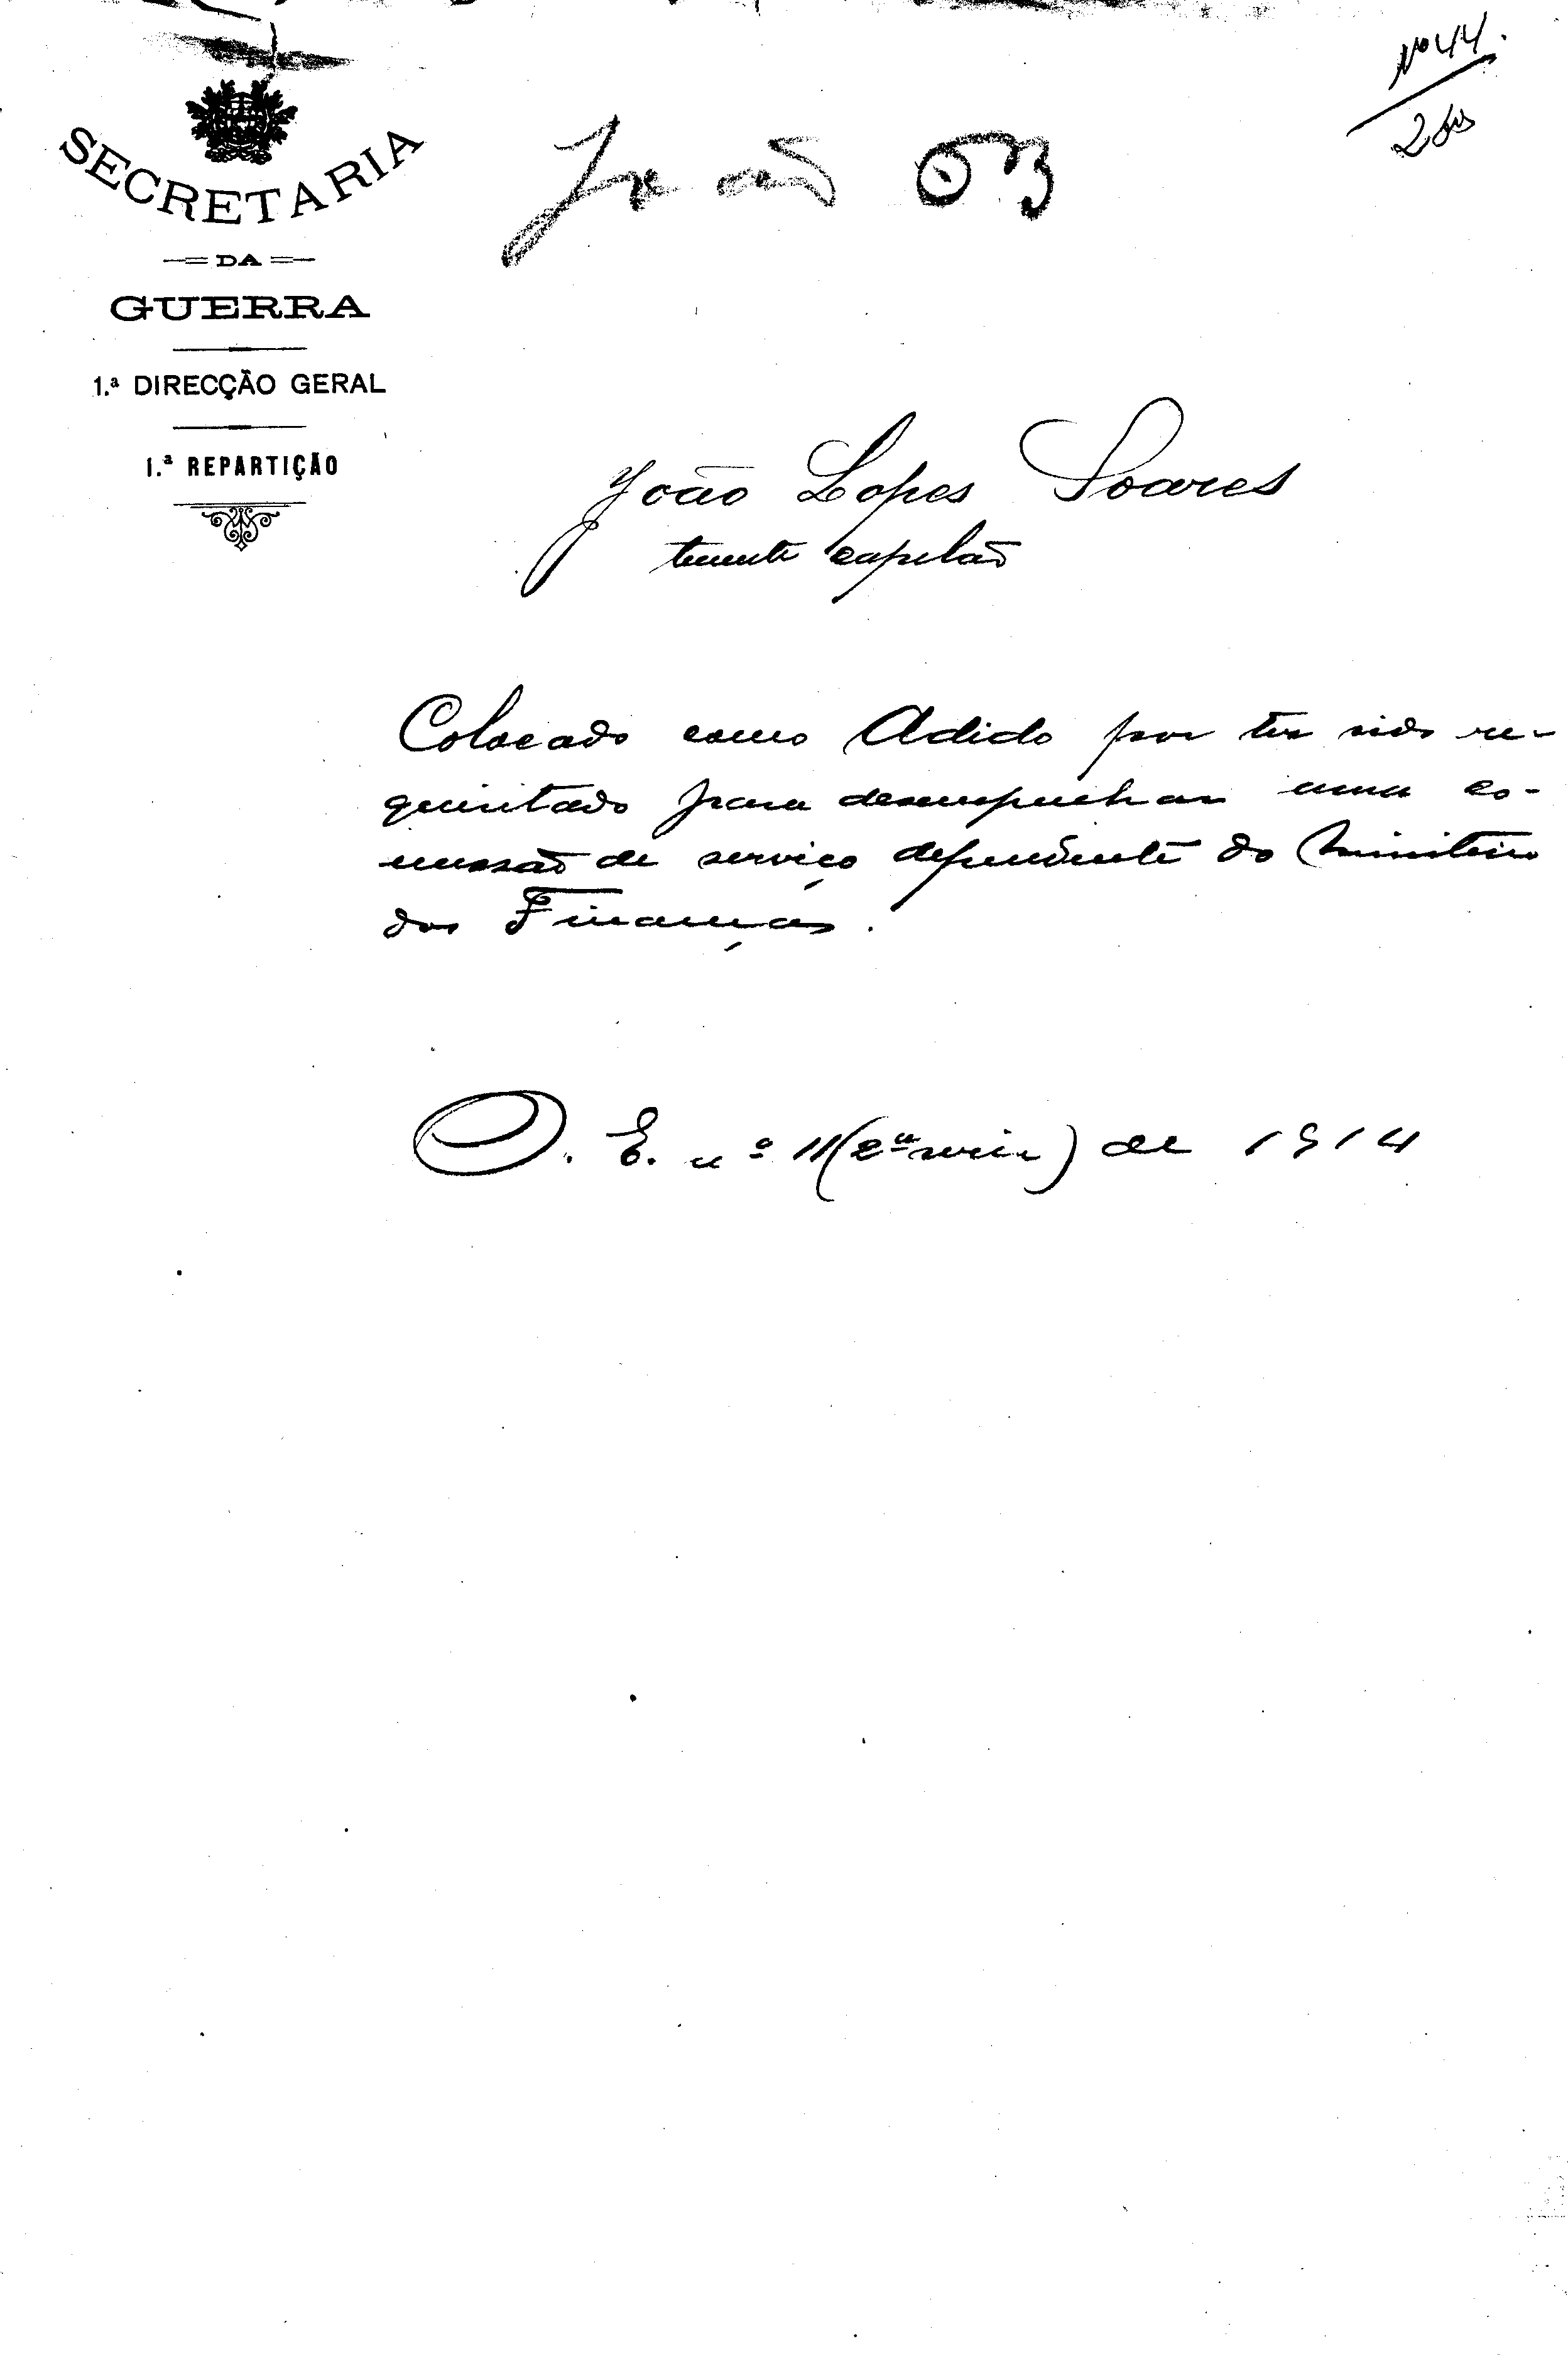 Nº 44.
2 bis
SECRETARIA
DA
GUERRA
1.ª DIRECÇÃO GERAL
1.ª REPARTIÇÃO
João
João Lopes Soares
tenente capelão
Colocado como Adido por ter sido re-
quisitado para desempenhar uma co-
missão de serviço dependente do Ministerio
das Finanças.
O. E. nº 11 (2ª serie) de 1914